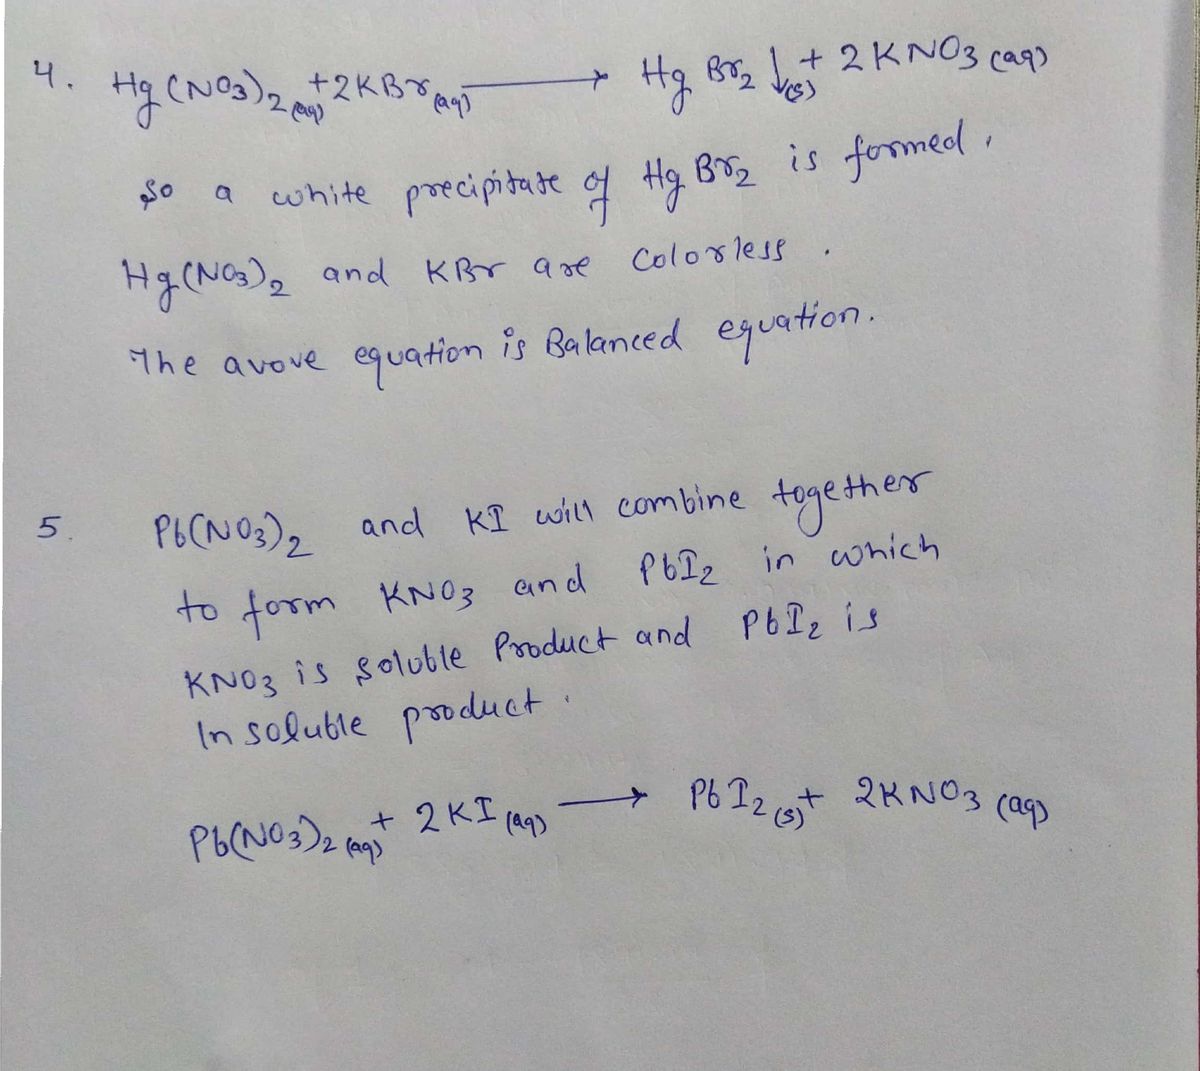 4. Hg(NO3)2(aq) + 2KBr(aq) ⟶ HgBr2↓(s) + 2KNO3(aq)
So a white precipitate of HgBr2 is formed.
Hg(NO3)2 and KBr are colorless.
The avove equation is Balanced equation.
5. Pb(NO3)2 and KI will combine together
to form KNO3 and PbI2 in which
KNO3 is soluble Product and PbI2 is
Insoluble product.
Pb(NO3)2(aq) + 2KI(aq) ⟶ PbI2(s) + 2KNO3(aq)